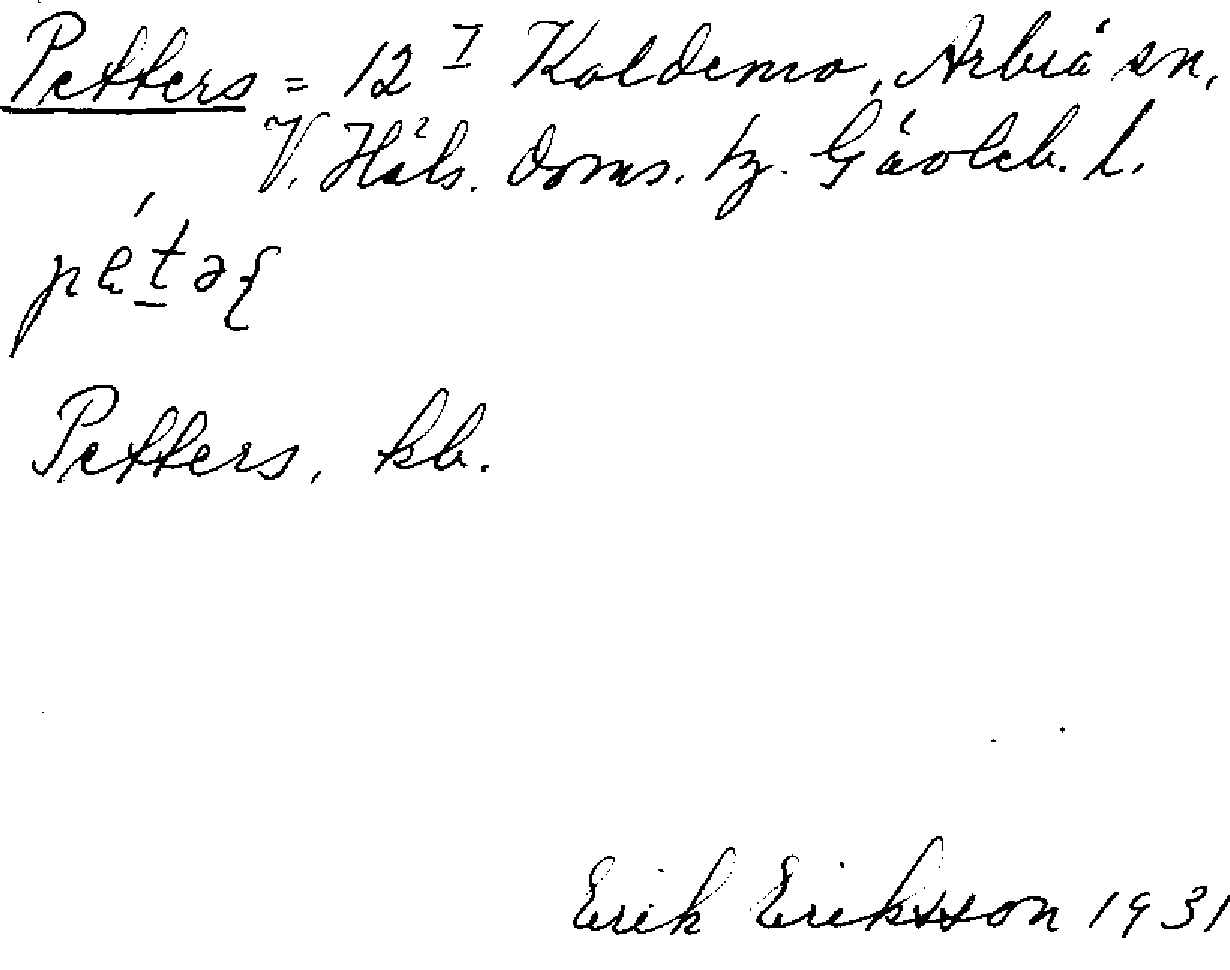 Petters = 12 I Koldemo, Arbrå sn,
V. Häls. doms. tg. Gävleb. l.
Petters, kb.
Erik Eriksson 1931